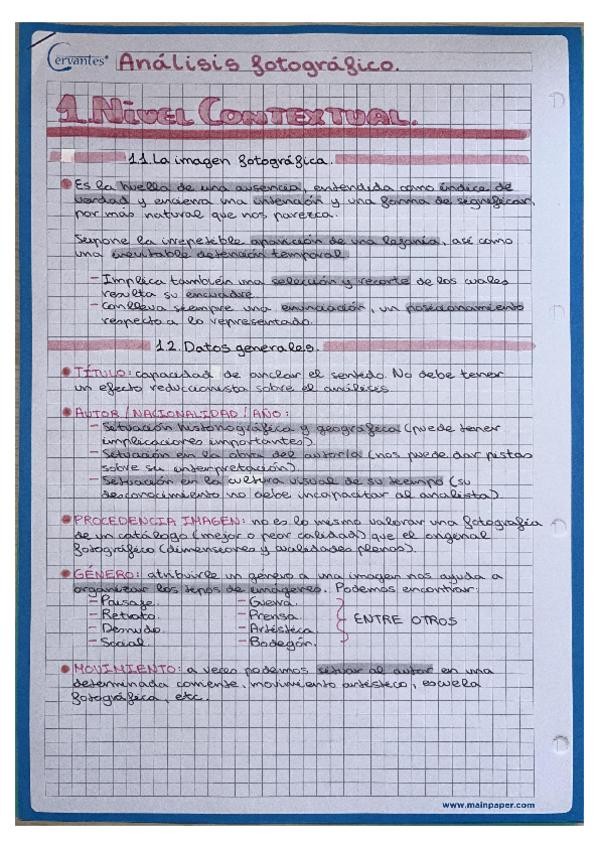 Cervantes®
Análisis fotográfico.
1. NIVEL CONTEXTUAL.
1.1. La imagen fotográfica.
Es la huella de una ausencia, entendida como índice de
verdad y encierra una intención y una forma de significar,
por más natural que nos parezca.
Supone la irrepetible aparición de una lejanía, así como
una inevitable detención temporal.
- Implica también una selección y recorte de los cuales
resulta su encuadre.
- Conlleva siempre una enunciación, un posicionamiento
respecto a lo representado.
1.2. Datos generales.
TÍTULO: capacidad de anclar el sentido. No debe tener
un efecto reduccionista sobre el análisis.
AUTOR / NACIONALIDAD / AÑO:
- Situación historiográfica y geográfica (puede tener
implicaciones importantes).
- Situación en la obra del autor/a (nos puede dar pistas
sobre su interpretación).
- Situación en la cultura visual de su tiempo (su
desconocimiento no debe incapacitar al analista).
PROCEDENCIA IMAGEN: no es lo mismo valorar una fotografía
de un catálogo (mejor o peor calidad) que el original
fotográfico (dimensiones y cualidades plenas).
GÉNERO: atribuirle un género a una imagen nos ayuda a
organizar los tipos de imágenes. Podemos encontrar:
- Paisaje. - Guerra.
- Retrato. - Prensa.
- Desnudo. - Artística.
- Social. - Bodegón.
ENTRE OTROS
MOVIMIENTO: a veces podemos situar al autor en una
determinada corriente, movimiento artístico, escuela
fotográfica, etc.
www.mainpaper.com